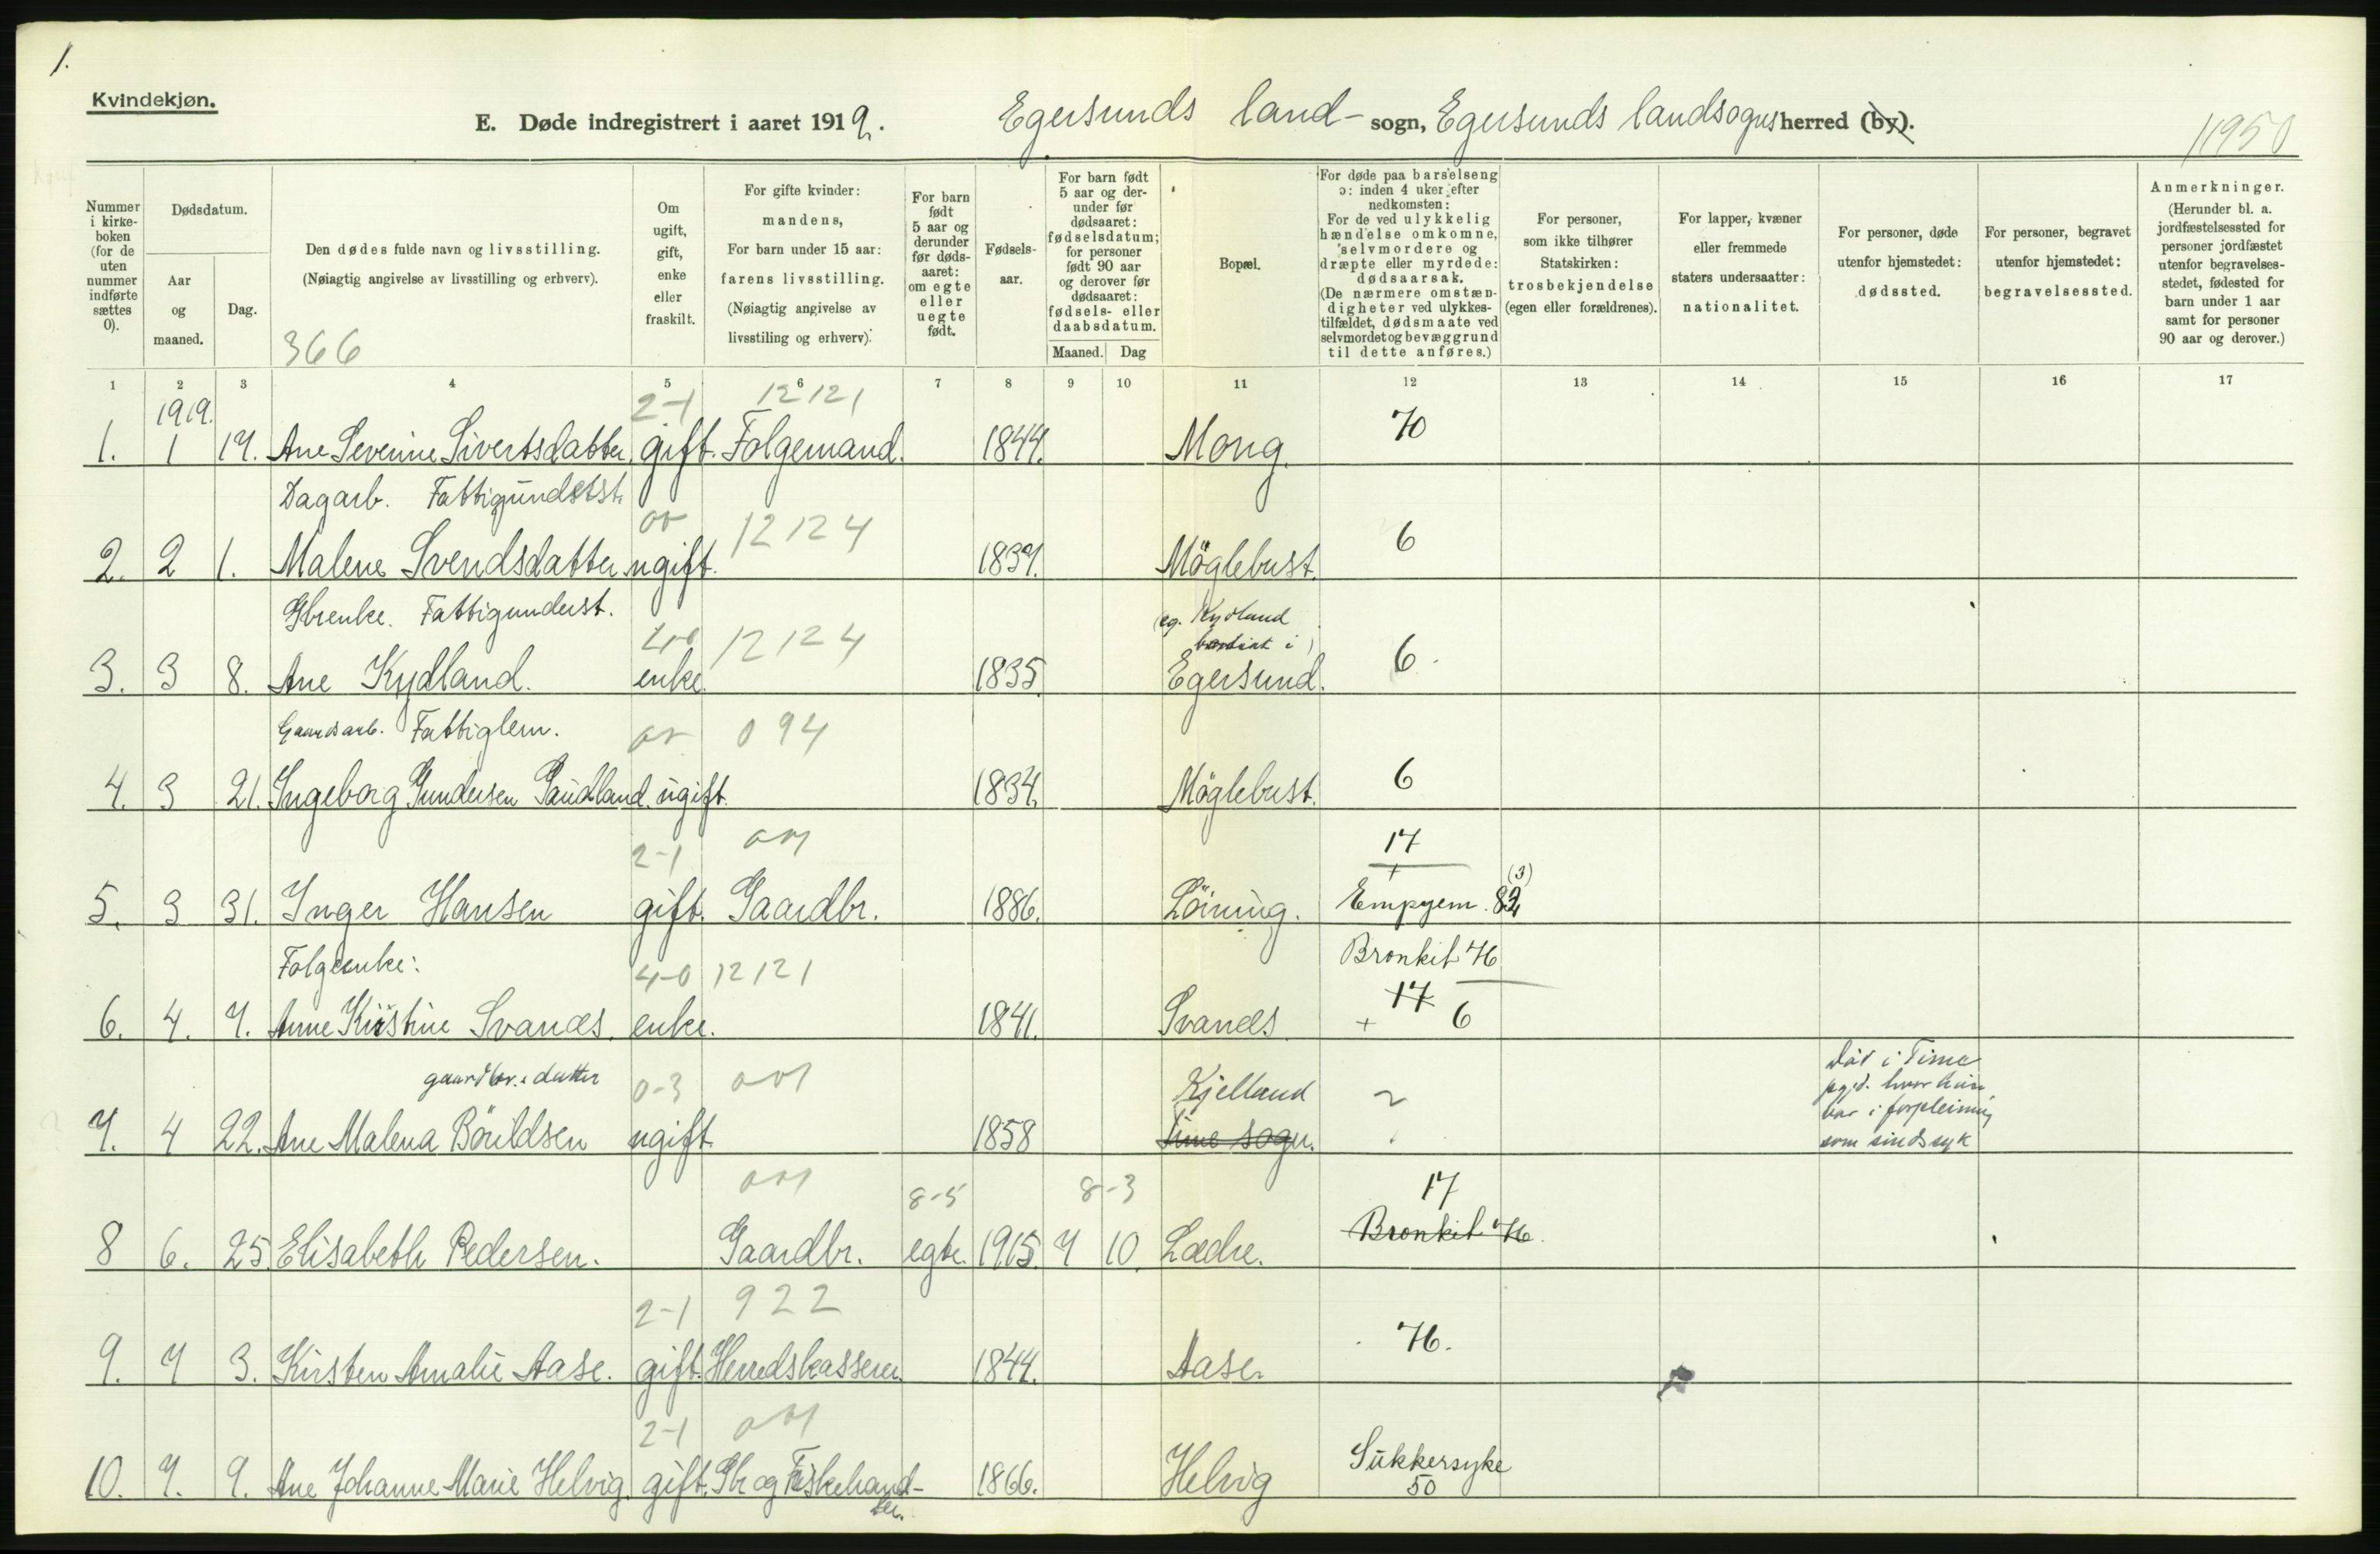 1.
Kvindekjøn.
E. Døde indregistrert i aaret 1919. Egersunds land- sogn, Egersunds landsogns herred (by).
11950
Nummer i kirke-boken (for de uten nummer indførte sættes 0).
Dødsdatum.
Aar og maaned.
Dag.
Den dødes fulde navn og livsstilling.
(Nøiagtig angivelse av livsstilling og erhverv).
366
Om ugift, gift, enke eller fraskilt.
For gifte kvinder: mandens,
For barn under 15 aar: farens livsstilling.
(Nøiagtig angivelse av livsstiling og erhverv).
For barn født 5 aar og derunder før døds-aaret: om egte eller uegte født.
Fødsels-aar.
For barn født 5 aar og der-under før dødsaaret: fødselsdatum; for personer født 90 aar og derover før dødsaaret: fødsels- eller daabsdatum.
Maaned. Dag
Bopæl.
For døde paa barselseng ɔ: inden 4 uker efter nedkomsten:
For de ved ulykkelig hændelse omkomne, selvmordere og dræpte eller myrdede: dødsaarsak.
(De nærmere omstæn-digheter ved ulykkes-tilfældet, dødsmaate ved selvmordet og bevæggrund til dette anføres.)
For personer, som ikke tilhører Statskirken: trosbekjendelse (egen eller forældrenes).
For lapper, kvæner eller fremmede staters undersaatter: nationalitet.
For personer, døde utenfor hjemstedet: dødssted.
For personer, begravet utenfor hjemstedet: begravelsessted.
Anmerkninger.
(Herunder bl. a. jordfæstelsessted for personer jordfæstet utenfor begravelses-stedet, fødested for barn under 1 aar samt for personer 90 aar og derover.)
1 2 3 4 5 6 7 8 9 10 11 12 13 14 15 16 17
1919. 2-1 12121
1. 1 17. Ane Severine Sivertsdatter gift. Folgemand. 1844. Mong. 70
Dagarb. Fattigundstst.
12124
2. 2 1. Malene Svendsdatter ugift. 1837. Möglebust. 6
Gbrenke. Fattigunderst. (eg. Kydland
4-0 12124 i)
3. 3 8. Ane Kydland. enke. 1835 Egersund. 6
Gaardsarb. Fattiglem. 094
4. 3 21. Ingeborg Gundersen Saudland. ugift. 1834. Möglebust. 6
2-1 17
5. 3 31. Inger Hansen gift. Gaardbr. 1886. Löining. Empyem. 82 (3)
Folgeenke: 4-0 12121 Bronkit 76
6. 4. 7. Anne Kristine Svanes. enke. 1841. Svanes + 17 6
gaardbr.s datter 0-3 Kjelland
7. 4 22. Ane Malena Börildsen ugift. 1858 Time sogn.
Död i Time
pgjd. hvor hun
var i forpleining
som sindssyk
8-5 8-3 17
8 6. 25. Elisabeth Pedersen. Gaardbr. egte. 1915. 7 10. Lædre. Bronkit 76.
2-1 922
9. 7 3. Kirsten Amalie Aase. gift. Herredskasserer. 1844. Aase. 76.
2-1
10. 7. 9. Ane Johanne Marie Helvig. gift. Gbr og Fiskehand- 1866. Helvig Sukkersyke
ler. 50